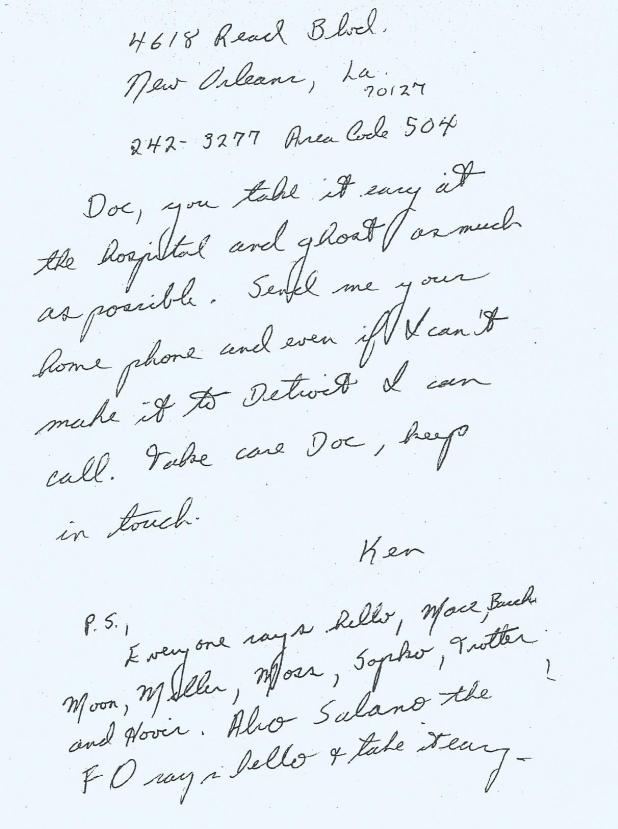 4618 Read Blvd.
New Orleans, La.
70127
242-3277 Area Code 504
Doc, you take it easy at
the hospital and ghost as much
as possible. Send me your
home phone and even if I can't
make it to Detroit I can
call. Take care Doc, keep
in touch.
Ken
P.S.,
Everyone says hello, Mace,
Moon, Miller, Moss, Sopko, Trotter
and Hovis. Also Solano the
FO says hello & take it easy-